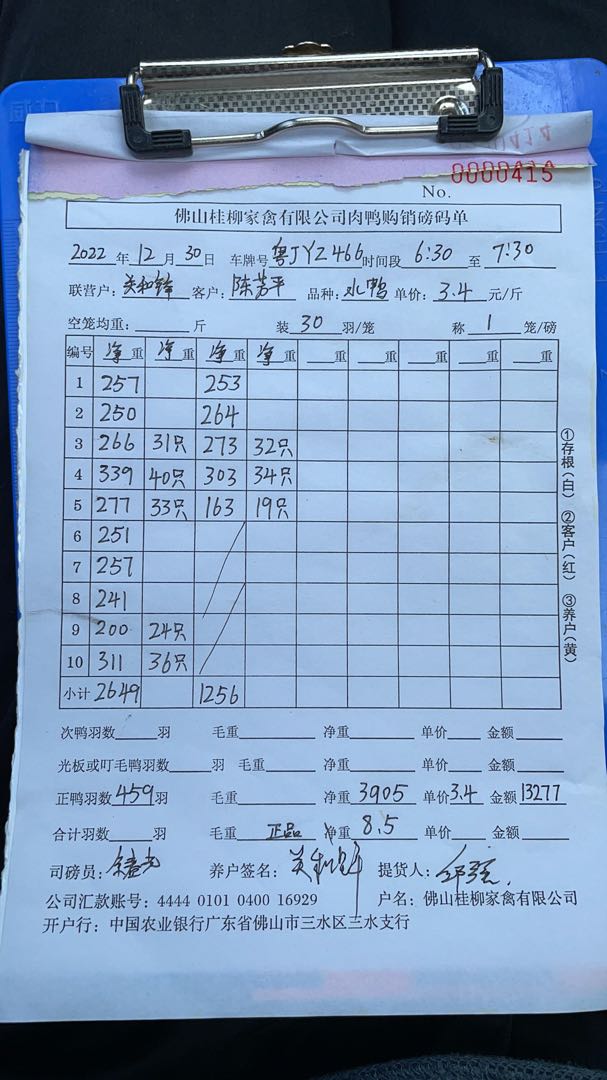 0000414
No. 0000415
佛山桂柳家禽有限公司肉鸭购销磅码单
2022 年 12 月 30 日 车牌号 粤JYZ466 时间段 6:30 至 7:30
联营户: 关和锋 客户: 陈芳平 品种: 水鸭 单价: 3.4 元/斤
空笼均重: 斤 装 30 羽/笼 称 1 笼/磅
编号 净重 净重 净重 净重 重 重 重 重
1 257 253
2 250 264
3 266 31只 273 32只
4 339 40只 303 34只
5 277 33只 163 19只
6 251
7 257
8 241
9 200 24只
10 311 36只
小计 2649 1256
①存根(白) ②客户(红) ③养户(黄)
次鸭羽数 羽 毛重 净重 单价 金额
光板或叮毛鸭羽数 羽 毛重 净重 单价 金额
正鸭羽数 459 羽 毛重 净重 3905 单价 3.4 金额 13277
合计羽数 羽 毛重 正品 净重 8.5 单价 金额
司磅员: 养户签名: 提货人:
公司汇款账号: 4444 0101 0400 16929 户名: 佛山桂柳家禽有限公司
开户行: 中国农业银行广东省佛山市三水区三水支行